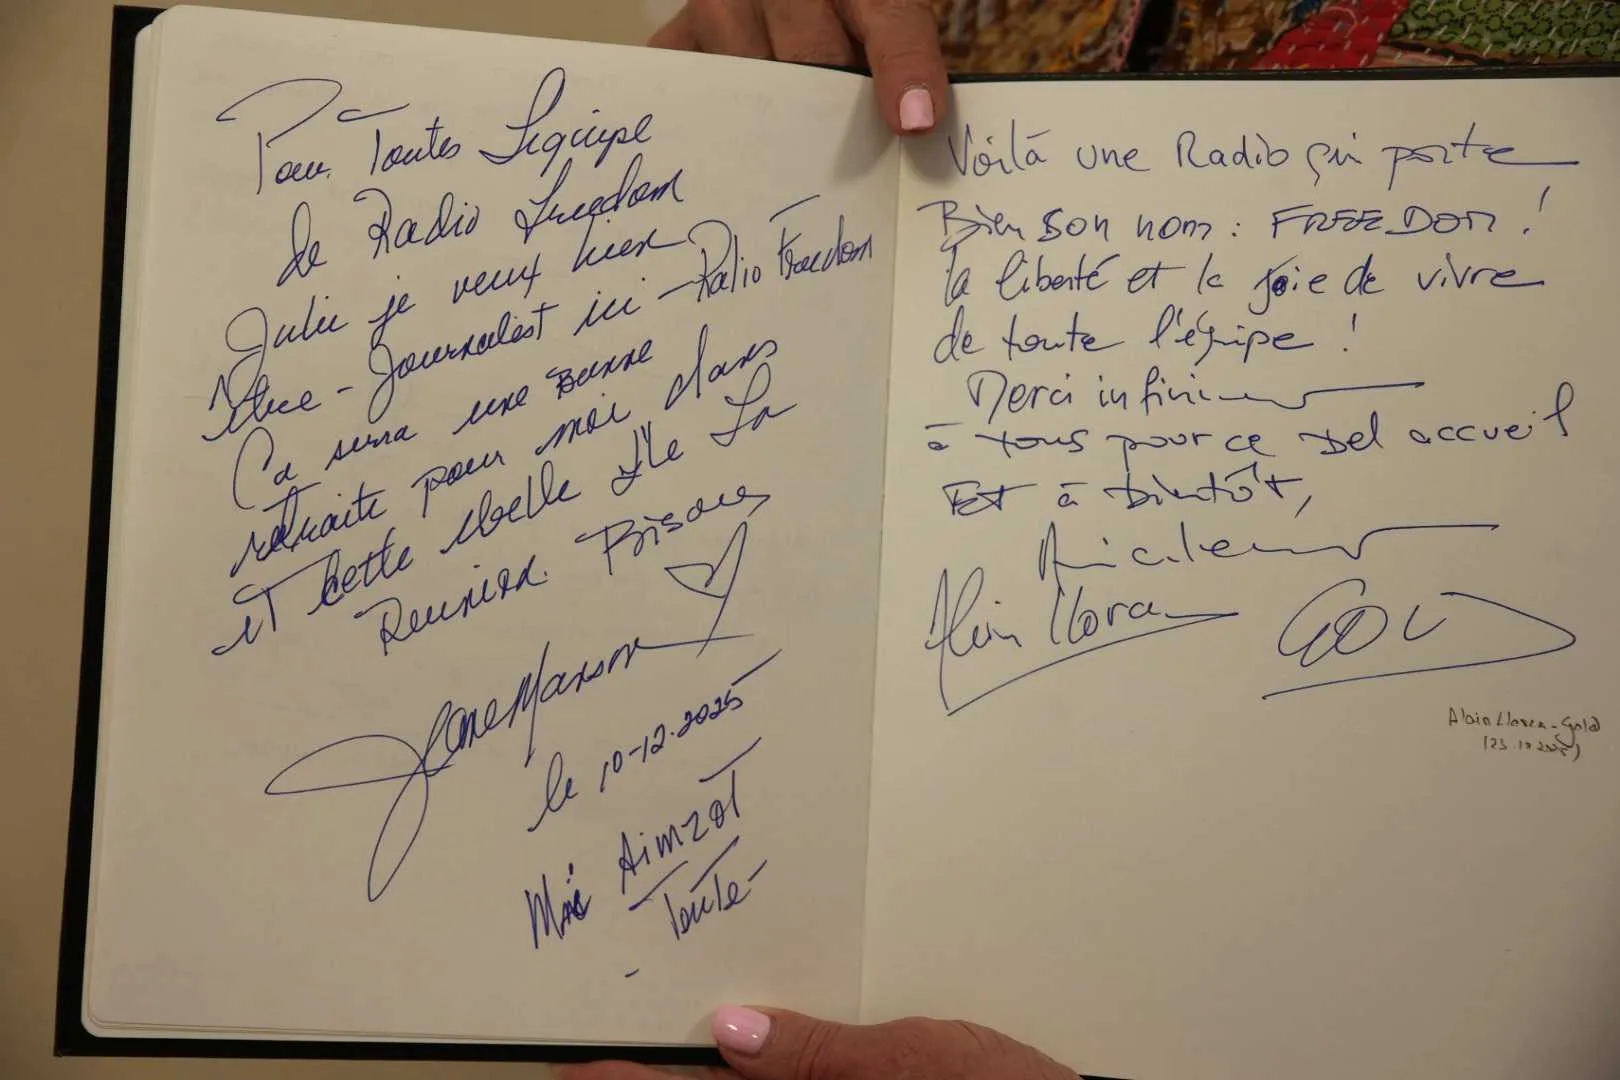 Pour Toutes L'equipe
de Radio Freedom
Julie je veux bien
être - Journalist ici - Radio Freedom
Ca sera une Bonne
retraite pour moi dans
et cette belle L'île La
Reunion. Bisous
Jane Manson
le 10-12-2025
Moi Aimzot
Toute
Voilà une Radio qui porte
Bien son nom : FREEDOM !
la liberté et la joie de vivre
de toute l'équipe !
Merci infiniment
à tous pour ce bel accueil
Et à bientôt,
Amicalement
Alain Llorca GOLD
Alain Llorca - Gold